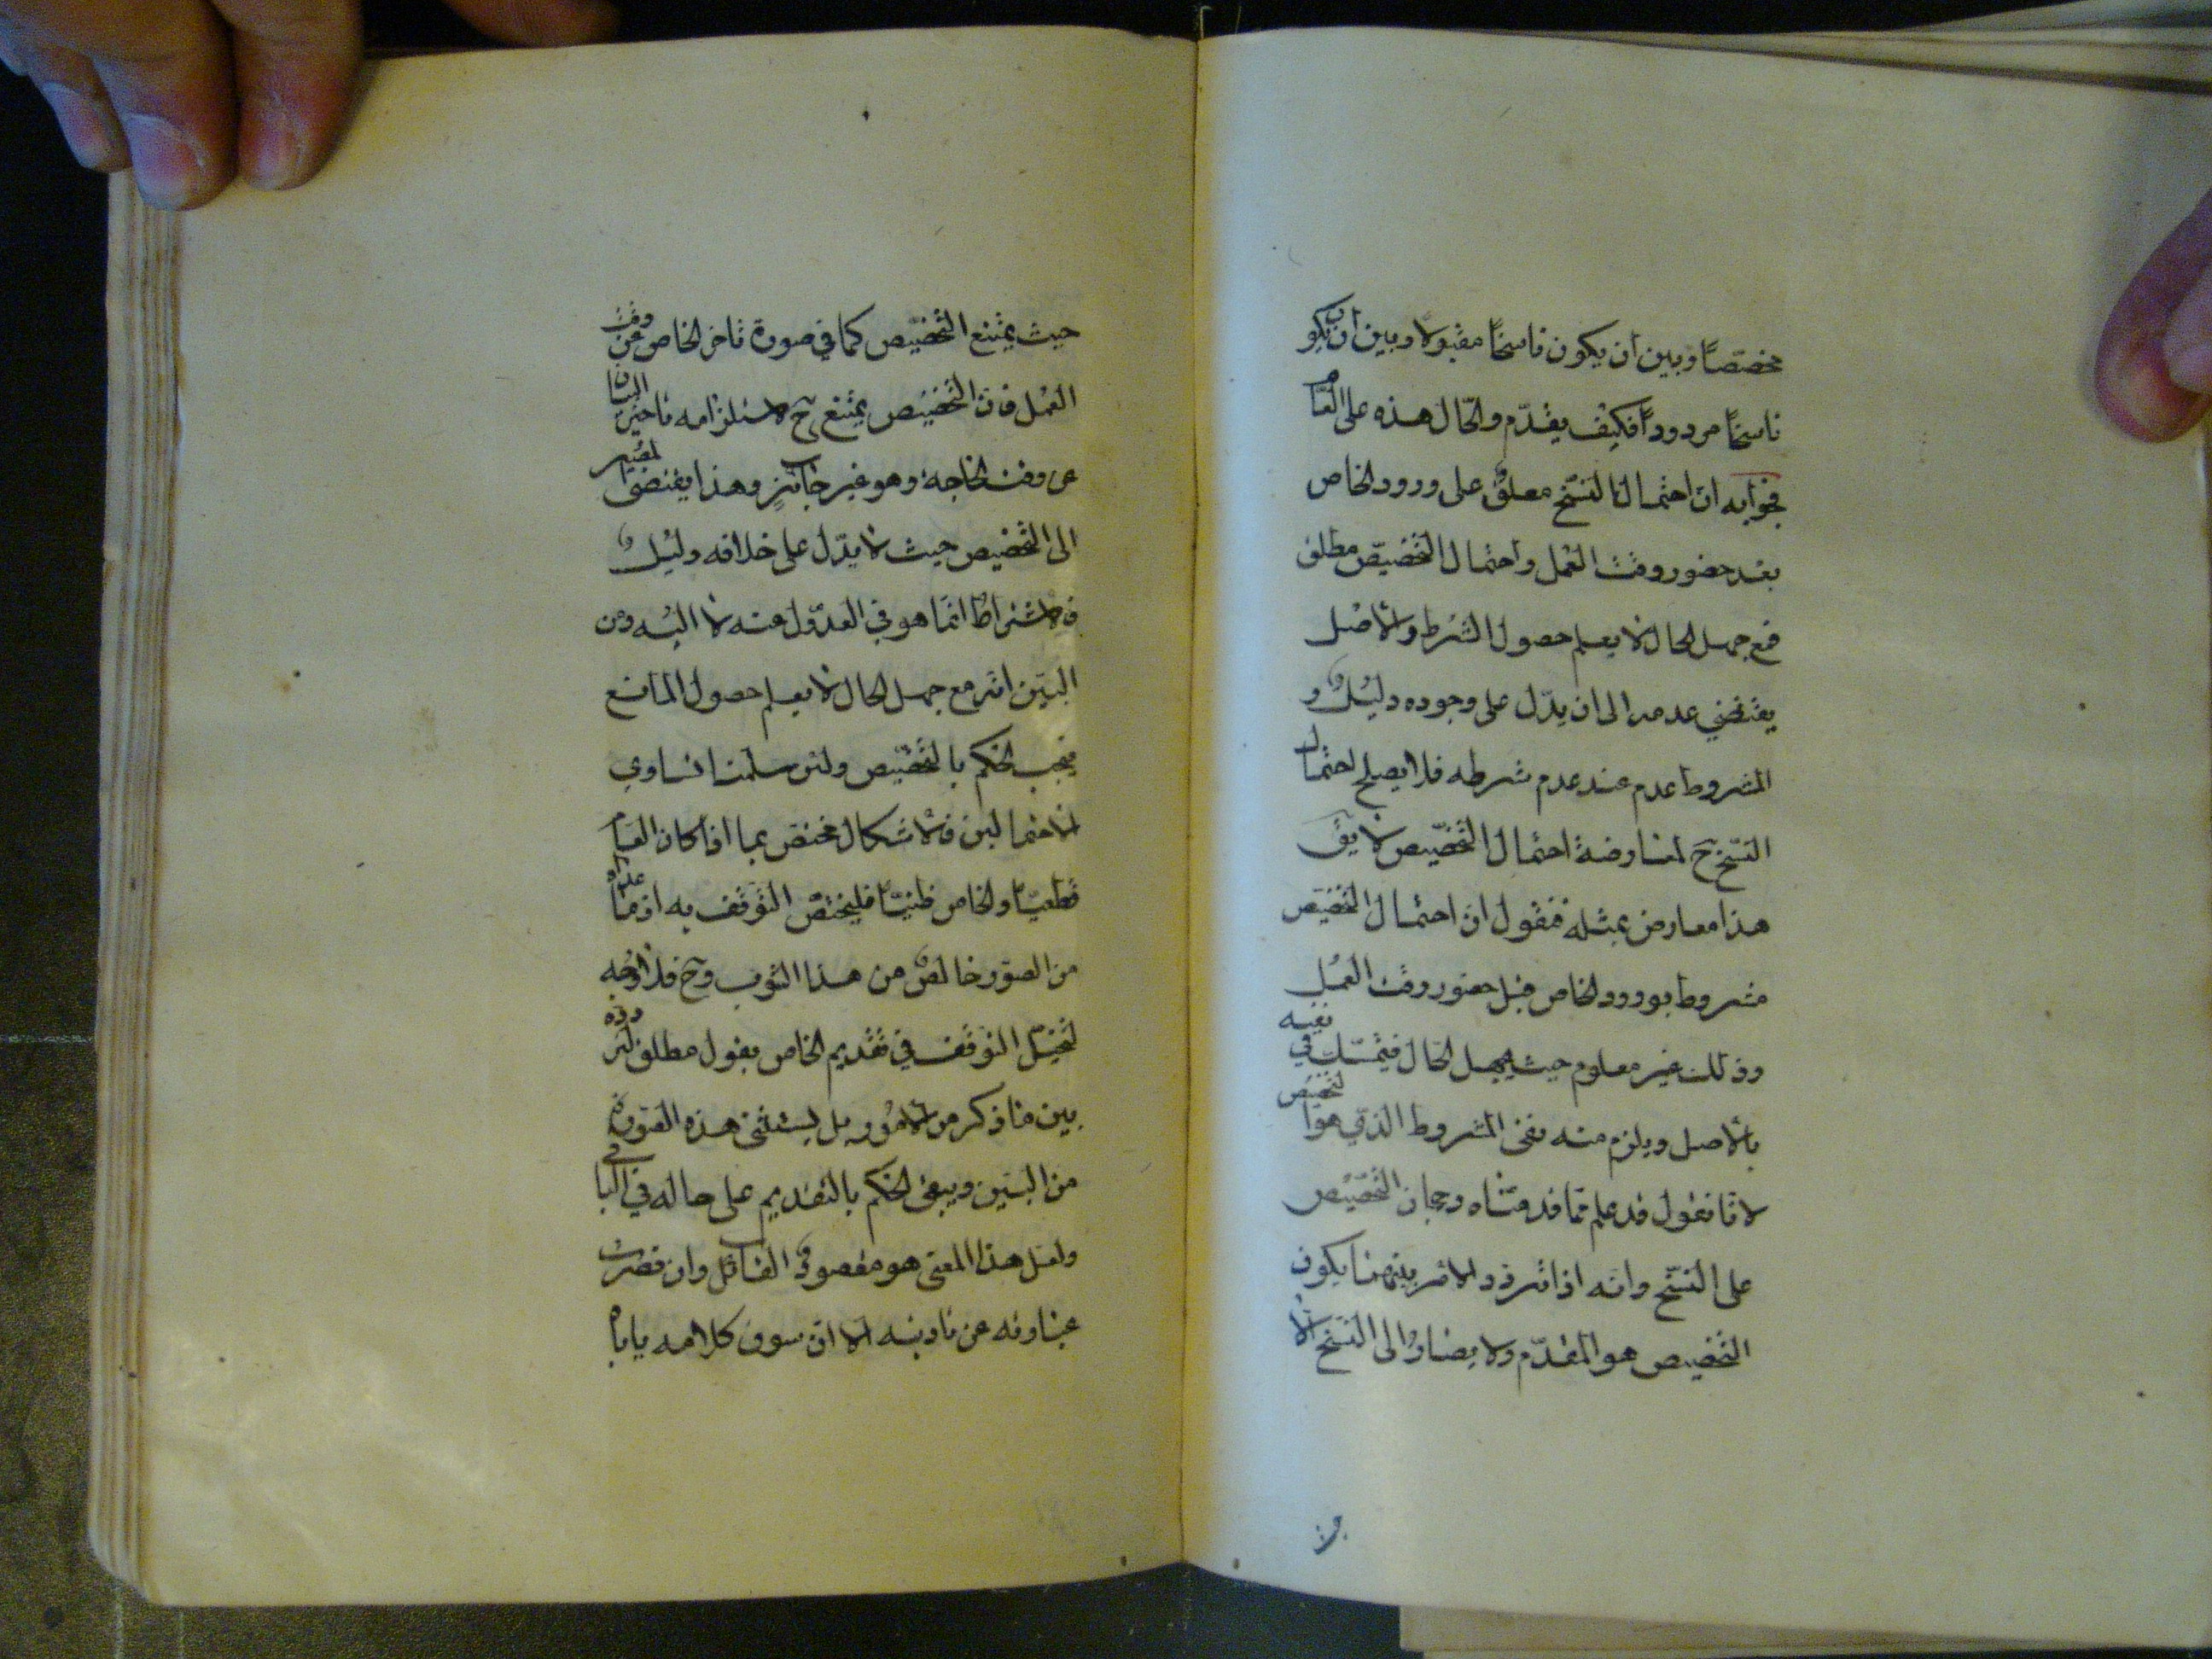 مخصّصاً وبين ان يكون ناسخاً مقبولا وبين ان يكون
ناسخاً مردوداً فكيف يقدّم والحال هذه على العامّ
فجوابه انّ احتمال النسخ معلّق على ورود الخاص
بعد حضور وقت العمل واحتمال التخصيص مطلق
فمع جهل الحال لا يعلم حصول الشرط والاصل
يقتضي عدمه الى ان يدلّ على وجوده دليل و
المشروط عدم عند عدم شرطه فلا يصلح احتمال
النسخ ح لمعارضة احتمال التخصيص لا يق
هذا معارض بمثله فنقول انّ احتمال التخصيص
مشروط بورود الخاص قبل حضور وقت العمل
وذلك غير معلوم حيث يجهل الحال فيتمسّك في نفيه
بالاصل ويلزم منه نفى المشروط الذي هو التخصيص
لانّا نقول قد علم ممّا قدمناه رجحان التخصيص
على النسخ وانه اذا تردد الامر بينهما يكون
التخصيص هو المقدّم ولا يصار الى النسخ الا
حيث يمتنع التخصيص كما في صورة تاخر الخاص عن وقت
العمل فانّ التخصيص يمتنع ح لاستلزامه تاخير البيان
عن وقت الحاجة وهو غير جائز وهذا يقتضى المصير
الى التخصيص حيث لا يدلّ على خلافه دليل
فالاشتراط انّما هو في العدول عنه لا اليه ومن
البيّن انّه مع جهل الحال لا يعلم حصول المانع
فيجب الحكم بالتخصيص ولئن سلمنا تساوي
الاحتمالين فالاشكال مختص بما اذا كان العام
قطعيّا والخاص ظنيّا فليختصّ التوقف به اذ ما عداه
من الصور خالص من هذا الثوب وح فلا وجه
لتخيّل التوقف في تقديم الخاص بقول مطلق لتردده
بين ما ذكر من الامور بل يستثنى هذه الصورة
من البين ويبقى الحكم بالتقديم على حاله في الباقي
ولعل هذا المعنى هو مقصود القائل وان قصرت
عبارته عن تاديته الا انّ سوق كلامه ياباه